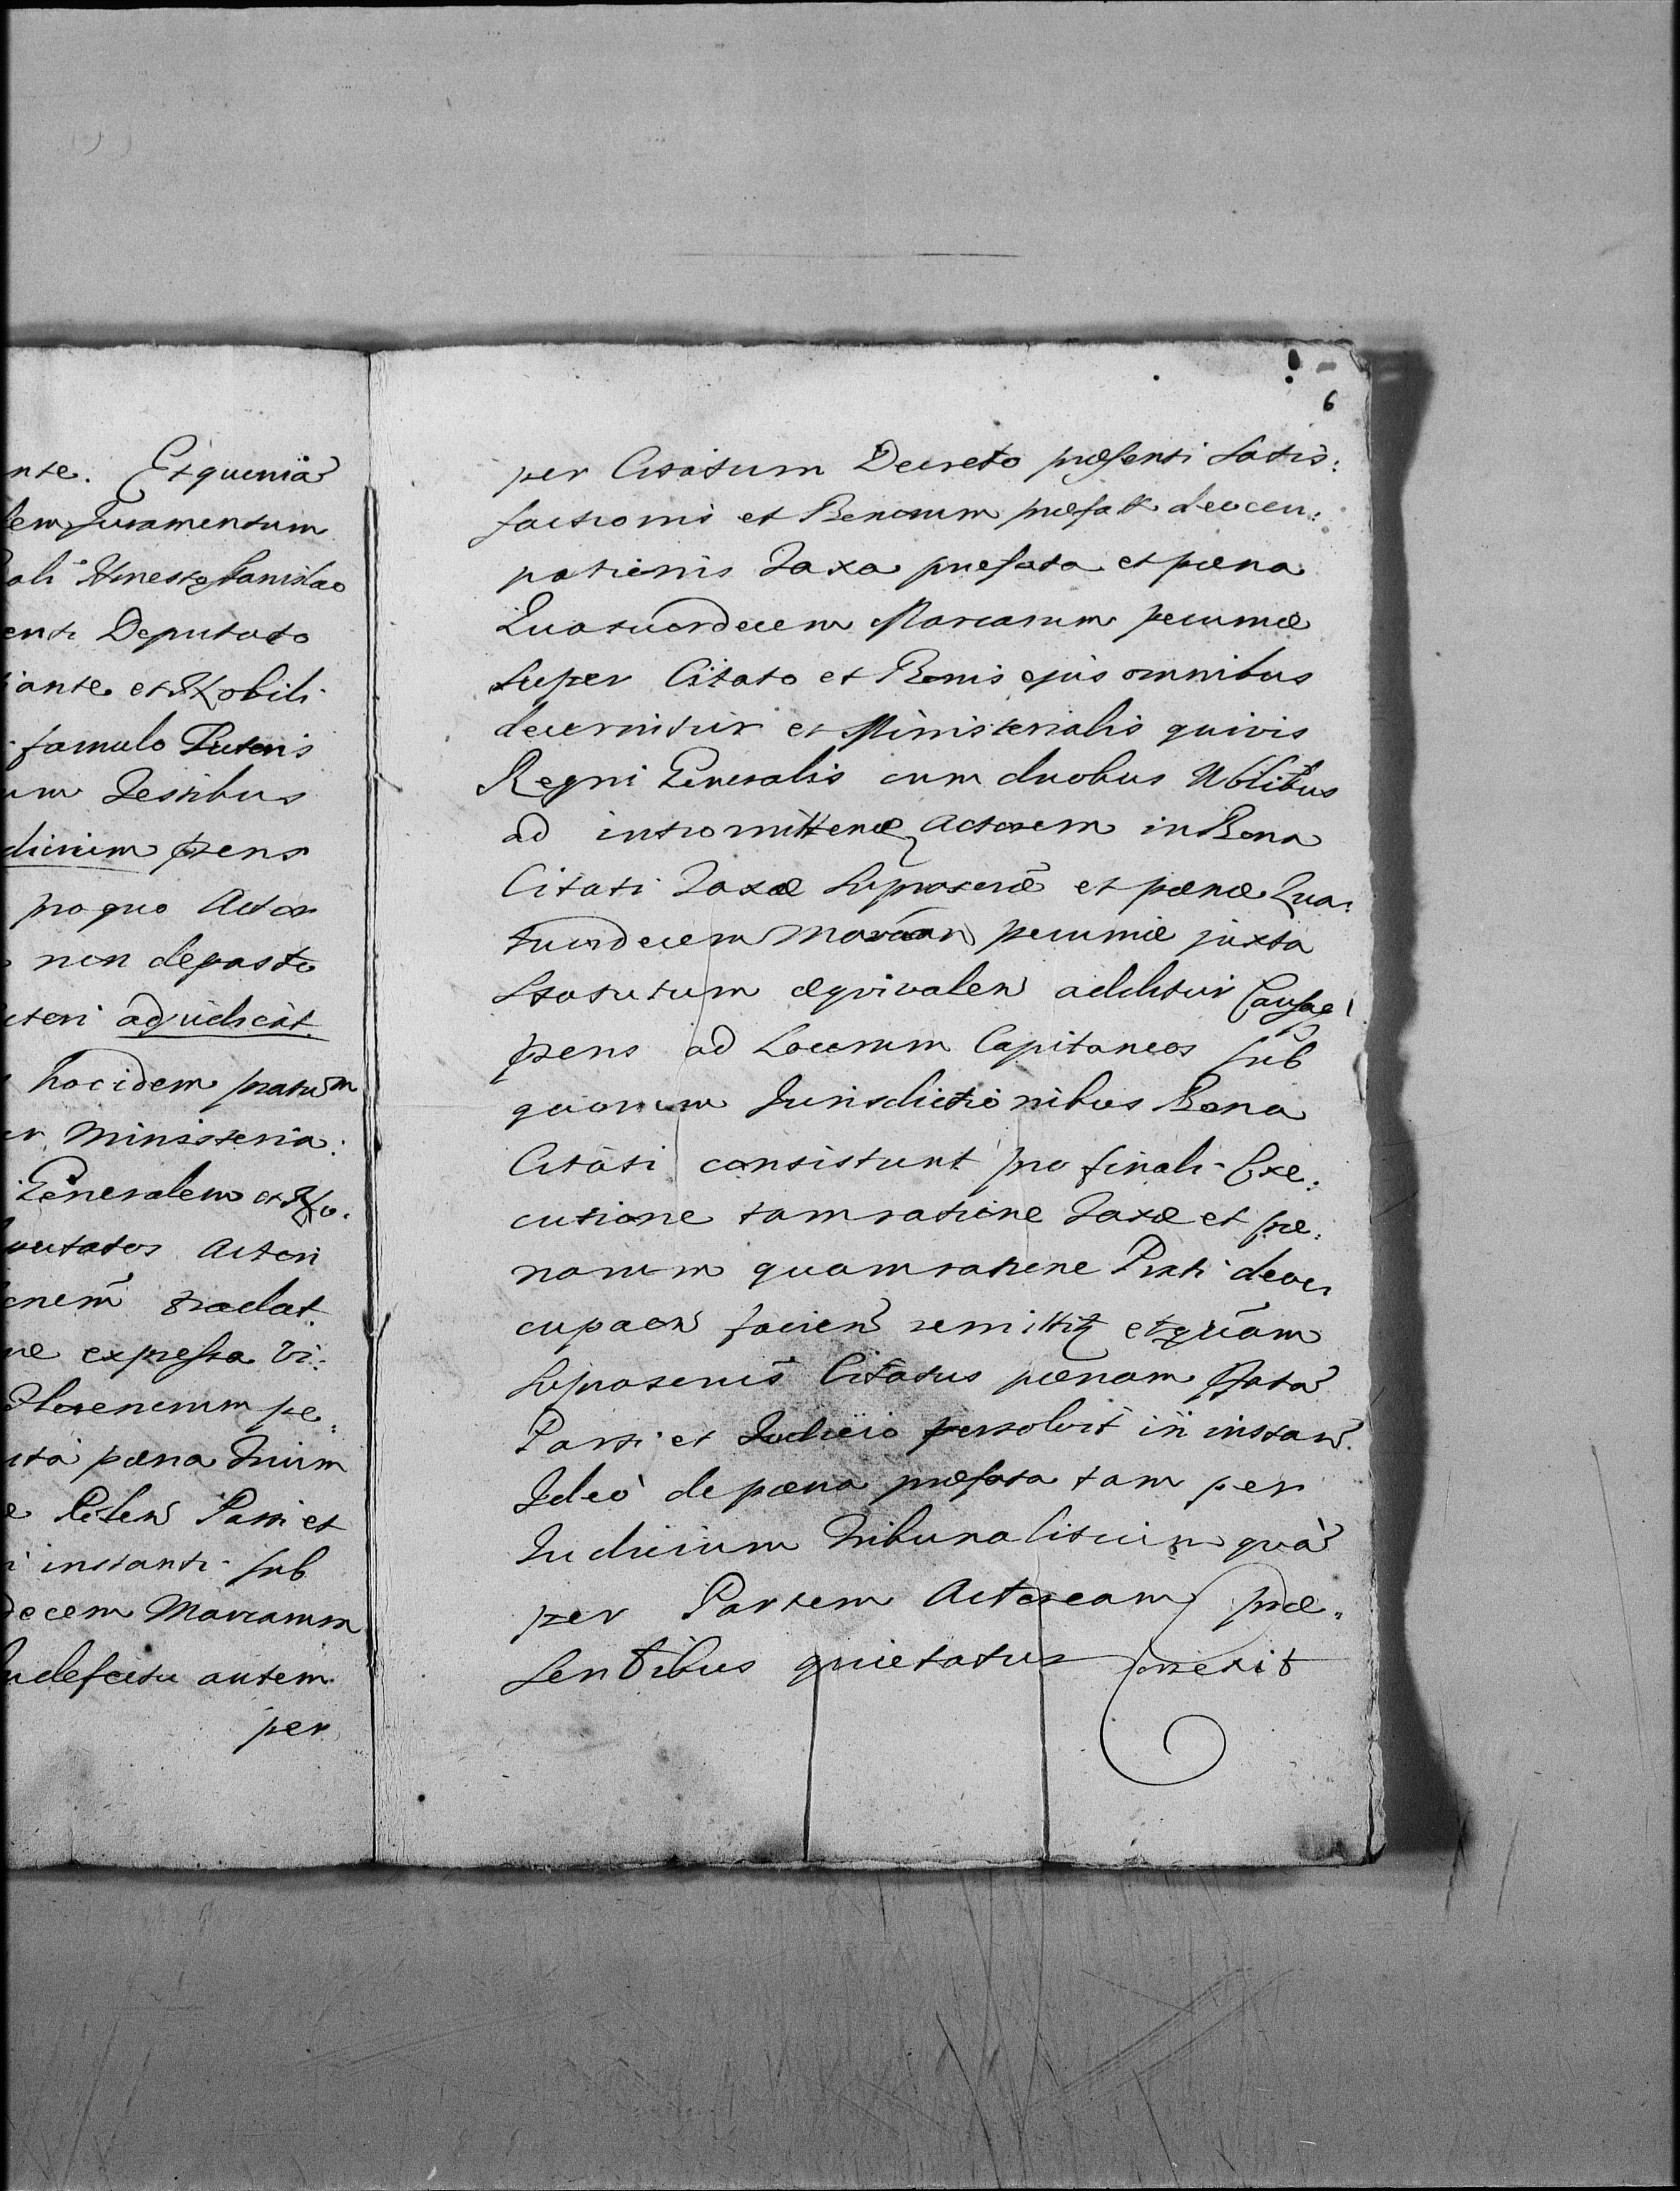 nte. Et quoniā
lem Juramentum
ali Ernesto Stanislao
enti Deputato
iante et Nobili
famulo Actoris
um Testibus
dicium praens
pro quo Actor
non deposito
ctori adjudicat
hocidem pratum
er Ministeria:
Generalem et No:
putatos Actori
onem tradat
ne expressa Vi:
Florenorum pe:
ita pæna Trium
Parti et
i instanti sub
decem Marcarum
In defectu autem
per
6
per Citatum Decreto præsenti Satis:
factionis et Bonorum præfatt deoccu:
pationis Taxa præfata et pæna
Quatuordecem Marcarum pecuniæ
Super Citato et Bonis ejus omnibus
decernitur et Ministerialis quivis
Regni Generalis cum duobus Nblibus
ad intromittend Actorem in Bona
Citati Taxæ Supra scrē et pænæ Qua:
tuordecem Marcar pecuniæ juxta
Statutum æquivalen additur Causaq
praens ad Locorum Capitaneos sub
quorum Jurisdictionibus Bona
Citati consistunt pro finali Exe:
cutione tam ratione Taxæ et pæ:
narum quam ratione Prati deoc
cupaon facien remittitq et quam
Supra scrius Citatus pænam pfata
Parti et Judicio persolvit in instan.
Ideò de pæna præfata tam per
Judicium Tribunalitium quā
per Partem Actoream præ:
sentibus quietatur